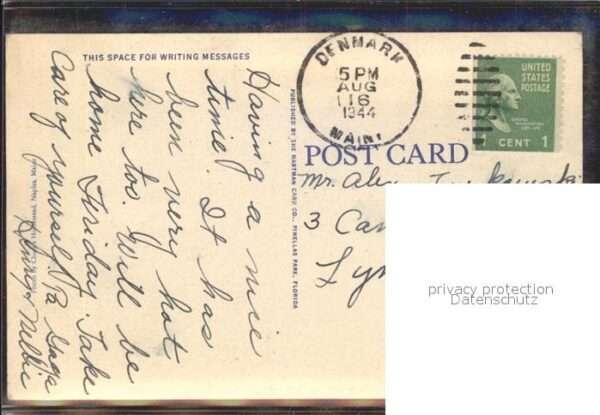 THIS SPACE FOR WRITING MESSAGES
Having a nice
time. It has
been very hot
here too. Will be
home Friday. Take
Care of yourself
Henry & Nellie
PUBLISHED BY THE HARTMAN CARD CO., PINELLAS PARK, FLORIDA
DENMARK
5 PM
AUG
16
1944
MAINE
UNITED
STATES
POSTAGE
CENT 1
POST CARD
Mr.
3
privacy protection
Datenschutz